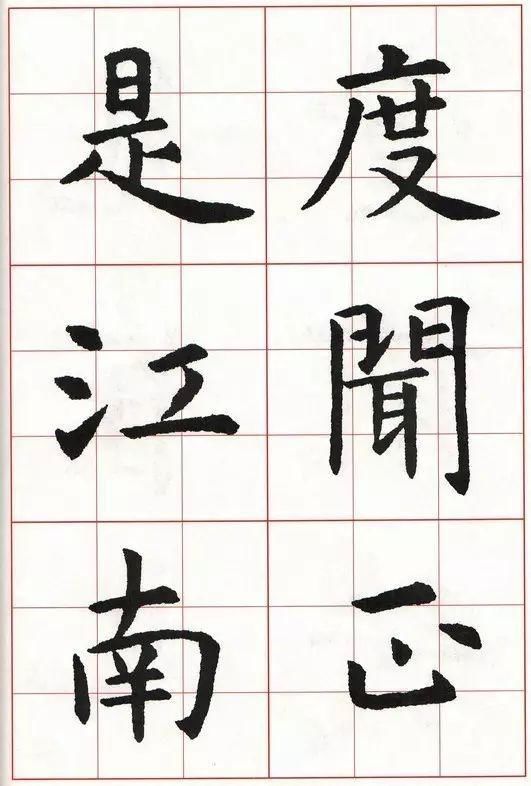 度聞正
是江南